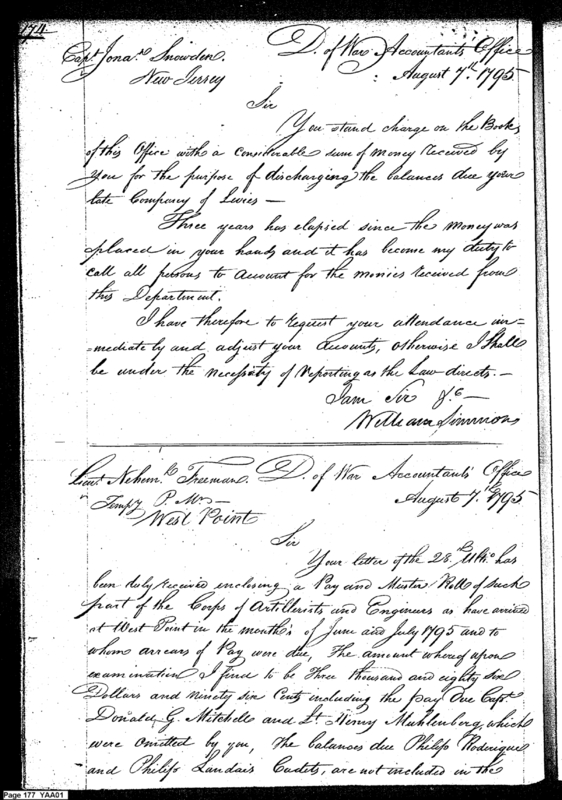 174
Capt Jona.n Snowden. D. of War Accountants Office
New Jersey August 7th 1795
Sir
You stand charge on the Books
of this Office with a considerable sum of money received by
you for the purpose of discharging the balances due your
late Company of Levies —
Three years has elapsed since the money was
placed in your hands and it has become my duty to
call all persons to account for the monies received from
this Department.
I have therefore to request your attendance im-
=mediately and adjust your Accounts, otherwise I shall
be under the necessity of Reporting as the Law directs. —
I am Sir &c —
William Simmons
Lieut Nehem.h Freeman D. of War Accountants' Office
Tempy P. Mr — August 7th 1795
West Point
Sir
Your letter of the 28th Ulto has
been duly received enclosing a Pay and Muster Roll of such
part of the Corps of Artillerists and Engineers as have arrived
at West Point in the month's of June and July 1795 and to
whom arrears of Pay were due, The amount whereof upon
examination I find to be three thousand and eighty six
Dollars and ninety six Cents including the pay due Capt
Donald G. Mitchell and Lt Henry Muhlenberg, which
were omitted by you, The balances due Philip Rodrique
and Philip Landais Cadets, are not included in the
Page 177 YAA01